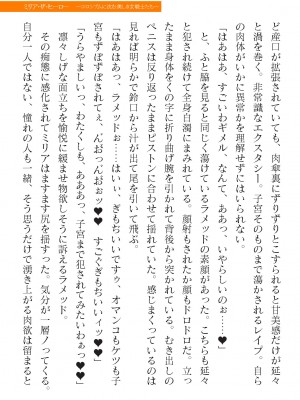 ど産口が拡張されていても、肉傘裏にずりずりとこすられると甘美感だけが延々
と渦を巻く。非常識なエクスタシー。子宮そのものまで蕩かされるレイプ。自ら
の肉体がいかに異常かを理解せずにはいられない。
「はああっ、すごいわギメル、なんて、ああっ、いやらしいのぉ……♥」
と、ふと脇を見ると同じく蕩けているラメッドの素顔があった。こちらも延々
と犯され続けて全身白濁にまみれている。顔射もされたか顔もドロドロだ。立っ
たまま身体をくの字に折り曲げ腕を引かれて背後から突かれている。むき出しの
ペニスは反り返ったままピストンに合わせて揺れていた。感じまくっているのは
見れば明らかで鈴口から汁が出て尾を引いて飛ぶ。
「はあはあっ、ラメッドぉ……はいぃ、ぎもぢいいですゥ、オマンコもケツも子
宮もずぽずぽされてェ、んおっんおぉッ♥♥　すごぐぎもぢいいイッ♥♥」
「うらやましいっ、わたくしも、あああっ、子宮まで犯されてみたいわぁっ♥」
凛々しげな面立ちを愉悦に緩ませ物欲しそうに訴えるラメッド。
その痴態に感化されてミリアはますます尻を揺する。気分が一層ノってくる。
自分一人ではない、憧れの人も一緒。そう思うだけで湧き上がる肉欲は留まると